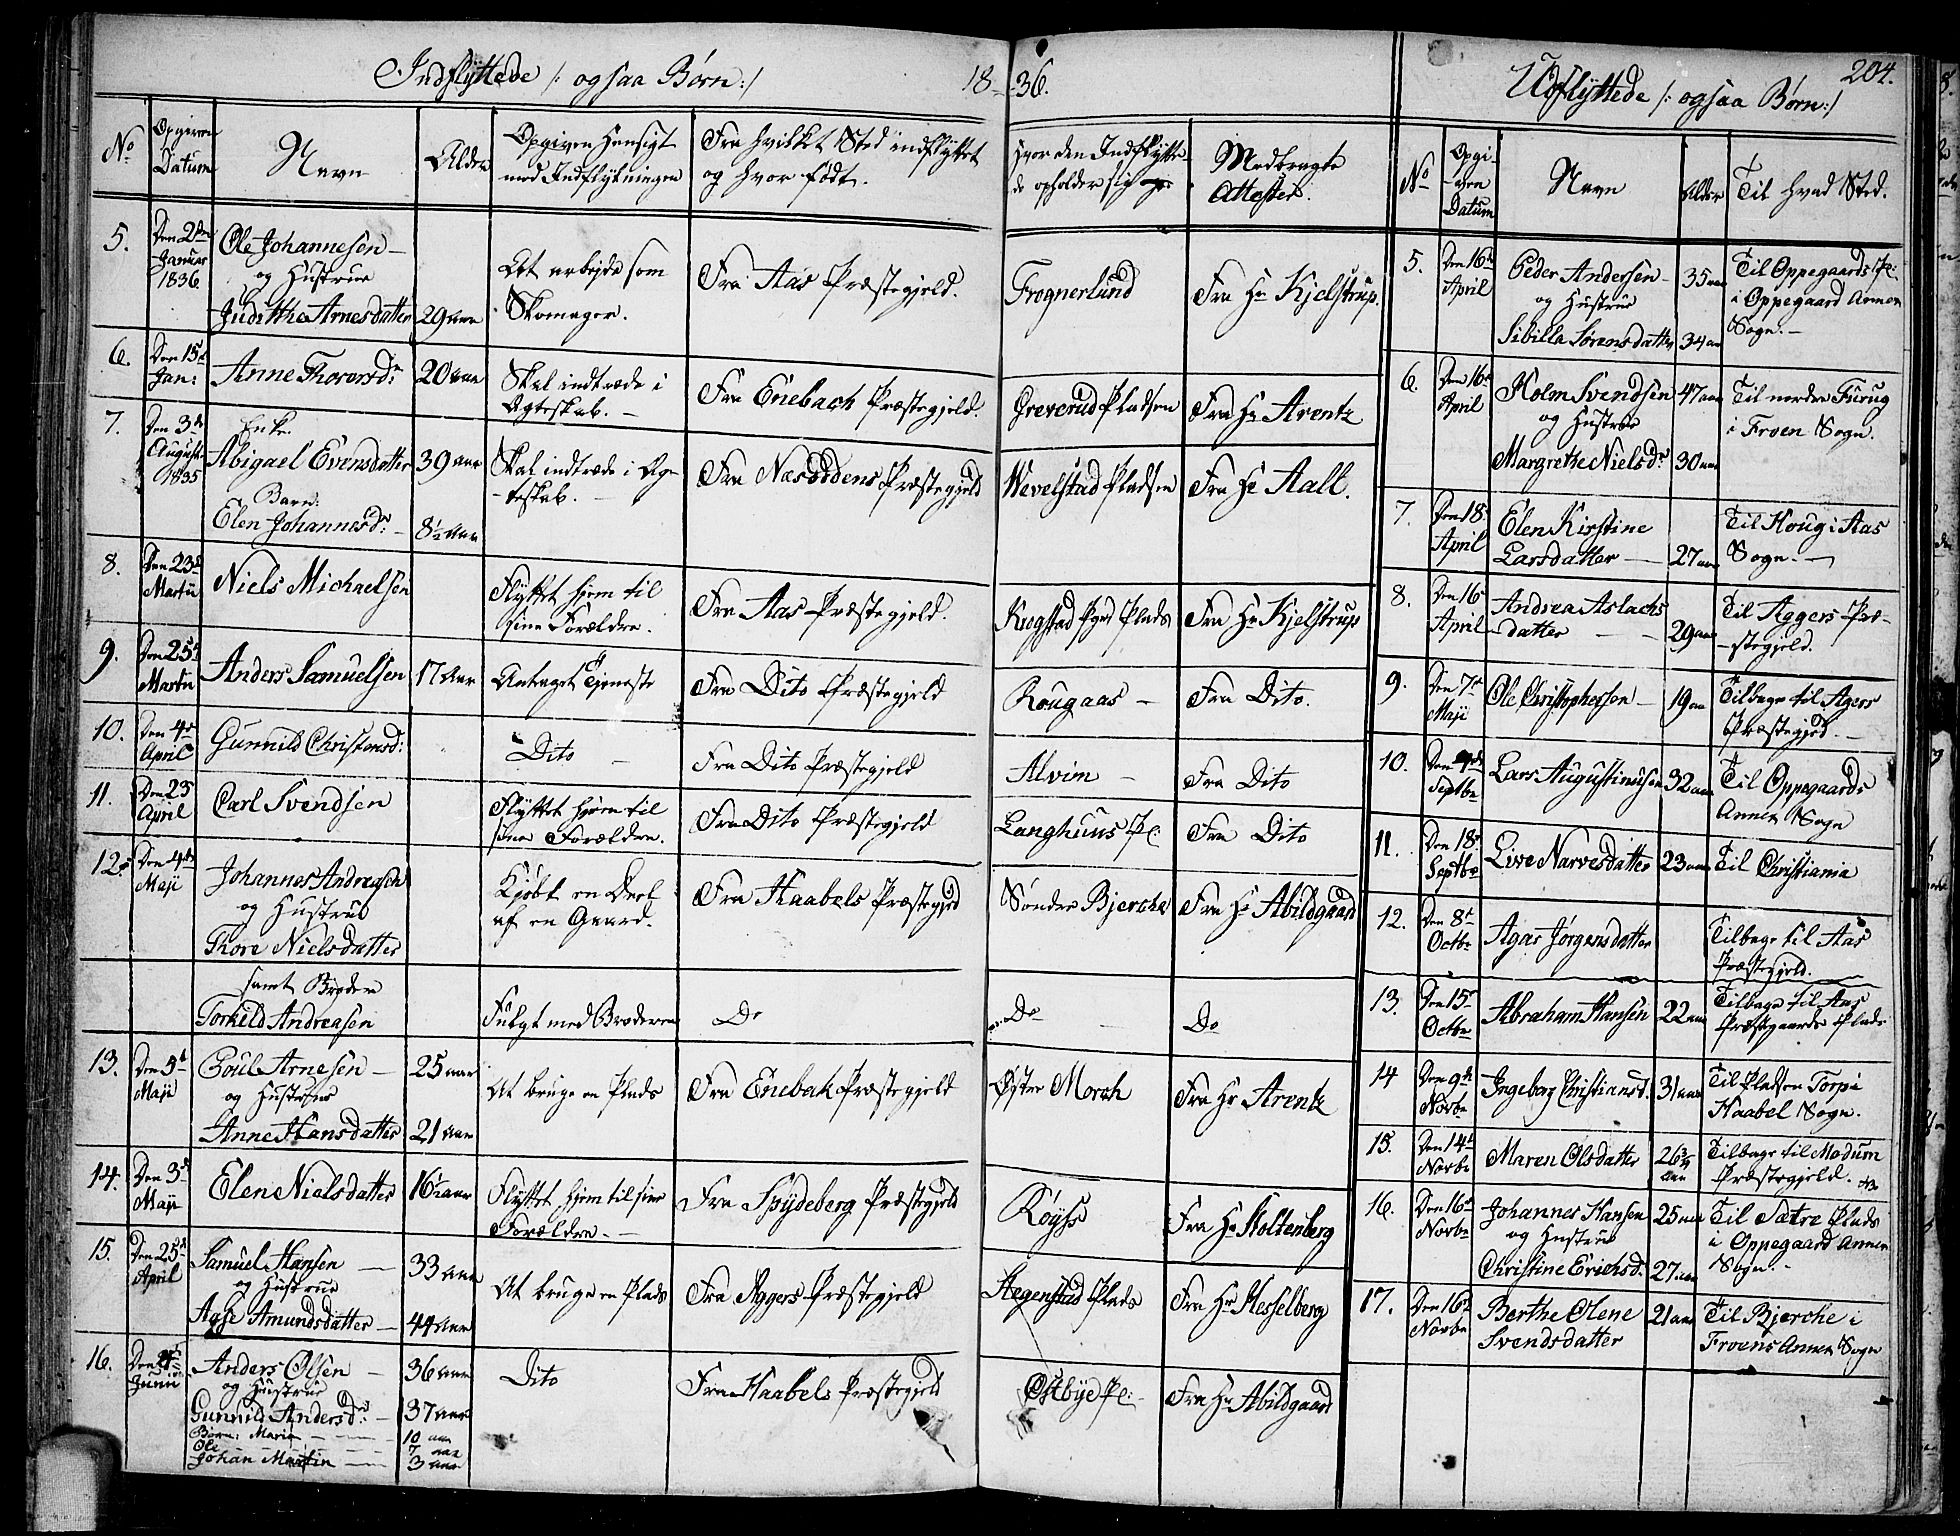 Indflyttede /: ogsaa Børn:/
18-36.
No
Opgiven Datum
Navn
Alder
Opgiven Hensigt med Indflytningen
Fra hvilket Sted indflyttet og hvor født.
Hvor den Indflyttede opholder sig
Medbragte Attester.
5.
Den 2den Januar 1836
Ole Johannesen –
og Hustrue
Judithe Arnesdatter
29 aar
At arbejde som
Skomager.
Fra Aas Præstegjeld.
Frognerlund
Fra Hr Kjelstrup.
6.
Den 15de Jan:
Anne Thorersdr:
20 aar
Skal indtræde i
Egteskab. –
Fra Enebach Præstegjeld.
Greverud Pladsen
Fra Hr Arentz
7.
Den 3de August 1835
Enke.
Abigael Evensdatter
39 aar
Barn:
Elen Johannesdr: –
8½ aar
Skal indtræde i Eg-
-teskab. –
Fra Næsoddens Præstegjeld
Wevelstad Pladsen
Fra Hr Aall.
8.
Den 23de Martii
Niels Michaelsen
Flyttet hjem til
sine Forældre.
Fra Aas Præstegjeld.
Krogstad Plads
Fra Hr Kjelstrup
9.
Den 25de Martii
Anders Samuelsen
17 Aar
Antaget Tjeneste
Fra Dito Præstegjeld
Rougaas –
Fra Dito.
10.
Den 4de April
Gunnild Christensd:
Dito –
Fra Dito Præstegjeld
Alvim –
Fra Dito
11.
Den 23 April
Carl Svendsen
Flyttet hjem til
sine Forældre.
Fra Dito Præstegjeld
Langhuus Pl:
Fra Dito
12.
Den 4de Maji
Johannes Andreasen
og Hustrue
Thore Nielsdatter
Kjøbt en Deel
af en Gaard.
Fra Haabels Præstegjeld
Søndre Bjerche
Fra Hr Abildgaard
samt Broder
Torkild Andreasen
Fulgt med Broderen
Do
Do
Do
13.
Den 5te Maji
Poul Arnesen –
og Hustrue
Anne Hansdatter
25 aar
21 aar
At bruge en Plads
Fra Enebak Præstegjeld
Østre Morch
Fra Hr Arentz
14.
Den 3de Maji
Elen Nielsdatter
16½ aar
Flyttet hjem til sine
Forældre. –
Fra Spydeberg Præstegjeld
Røyss
Fra Hr Stoltenberg
15.
Den 25de April
Samuel Hansen –
og Hustrue
Aase Amundsdatter –
33 aar
44 aar
At bruge en Plads
Fra Aggers Præstegjeld
Hegenstad Plads
Fra Hr Hesselberg
16.
Junii
Anders Olsen –
og Hustrue
Gunnild Andersdr: –
Børn: Maria – –
Ole – –
Johan Martin –
36 aar
37 aar
10 aar
7 aar
3 aar
Dito
Fra Haabels Præstegjeld
Østbye Pl:
Fra Hr Abildgaard
204.
Udflyttede /: ogsaa Børn:/
No
Opgiven Datum
Navn
Alder
Til hvad Sted.
5.
Den 16de April
Peder Andersen –
og Hustrue
Sibilla Sørensdatter
35 aar
34 aar
Til Oppegaards Pl:
i Oppegaard Annex
Sogn. –
6.
Den 16de April
Holm Svendsen
og Hustrue
Margrethe Nielsdr
47 aar
30 aar
Til nordre Furug
i Froen Sogn.
7.
Den 18 April
Elen Kirstine
Larsdatter –
27 aar
Til Houg i Aas
Sogn. –
8.
Den 16 April
Andrea Aslachs
-datter –
29 aar
Til Aggers Præ-
-stegjeld.
9.
Den 7de Maji
Ole Christophersen –
19 aar
Tilbage til Agers
Præstegjed. –
10.
Septbr
Lars Augustinusen
32 aar
Til Oppegaards
Annex Sogn
11.
Den 18de Septbr
Live Narvesdatter
23 aar
Til Christiania
12.
Den 8de Octbr
Agas Jørgensdatter
Tilbage til Aas
Præstegjeld.
13.
Den 15de Octbr
Abraham Hansen
22 aar
Tilbage til Aas
Præstegaards Plads
14
Den 9de Novbr
Ingeborg Christiansd.
31 aar
Til Pladsen Torpe
Haabel Sogn.
15.
Den 14de Novbr
Maren Olsdatter
26¾ aar
Tilbage til Modum
Præstegjeld.
16.
Den 16de Novbr
Johannes Hansen
og Hustrue
Christine Erichsd.
25 aar
27 aar
Til Sætre Plads
i Oppegaard Annex
Sogn. –
17.
Den 16de Novbr
Berthe Olene
Svendsdatter
21 aar
Til Bjerche i
Froens Annex Sogn